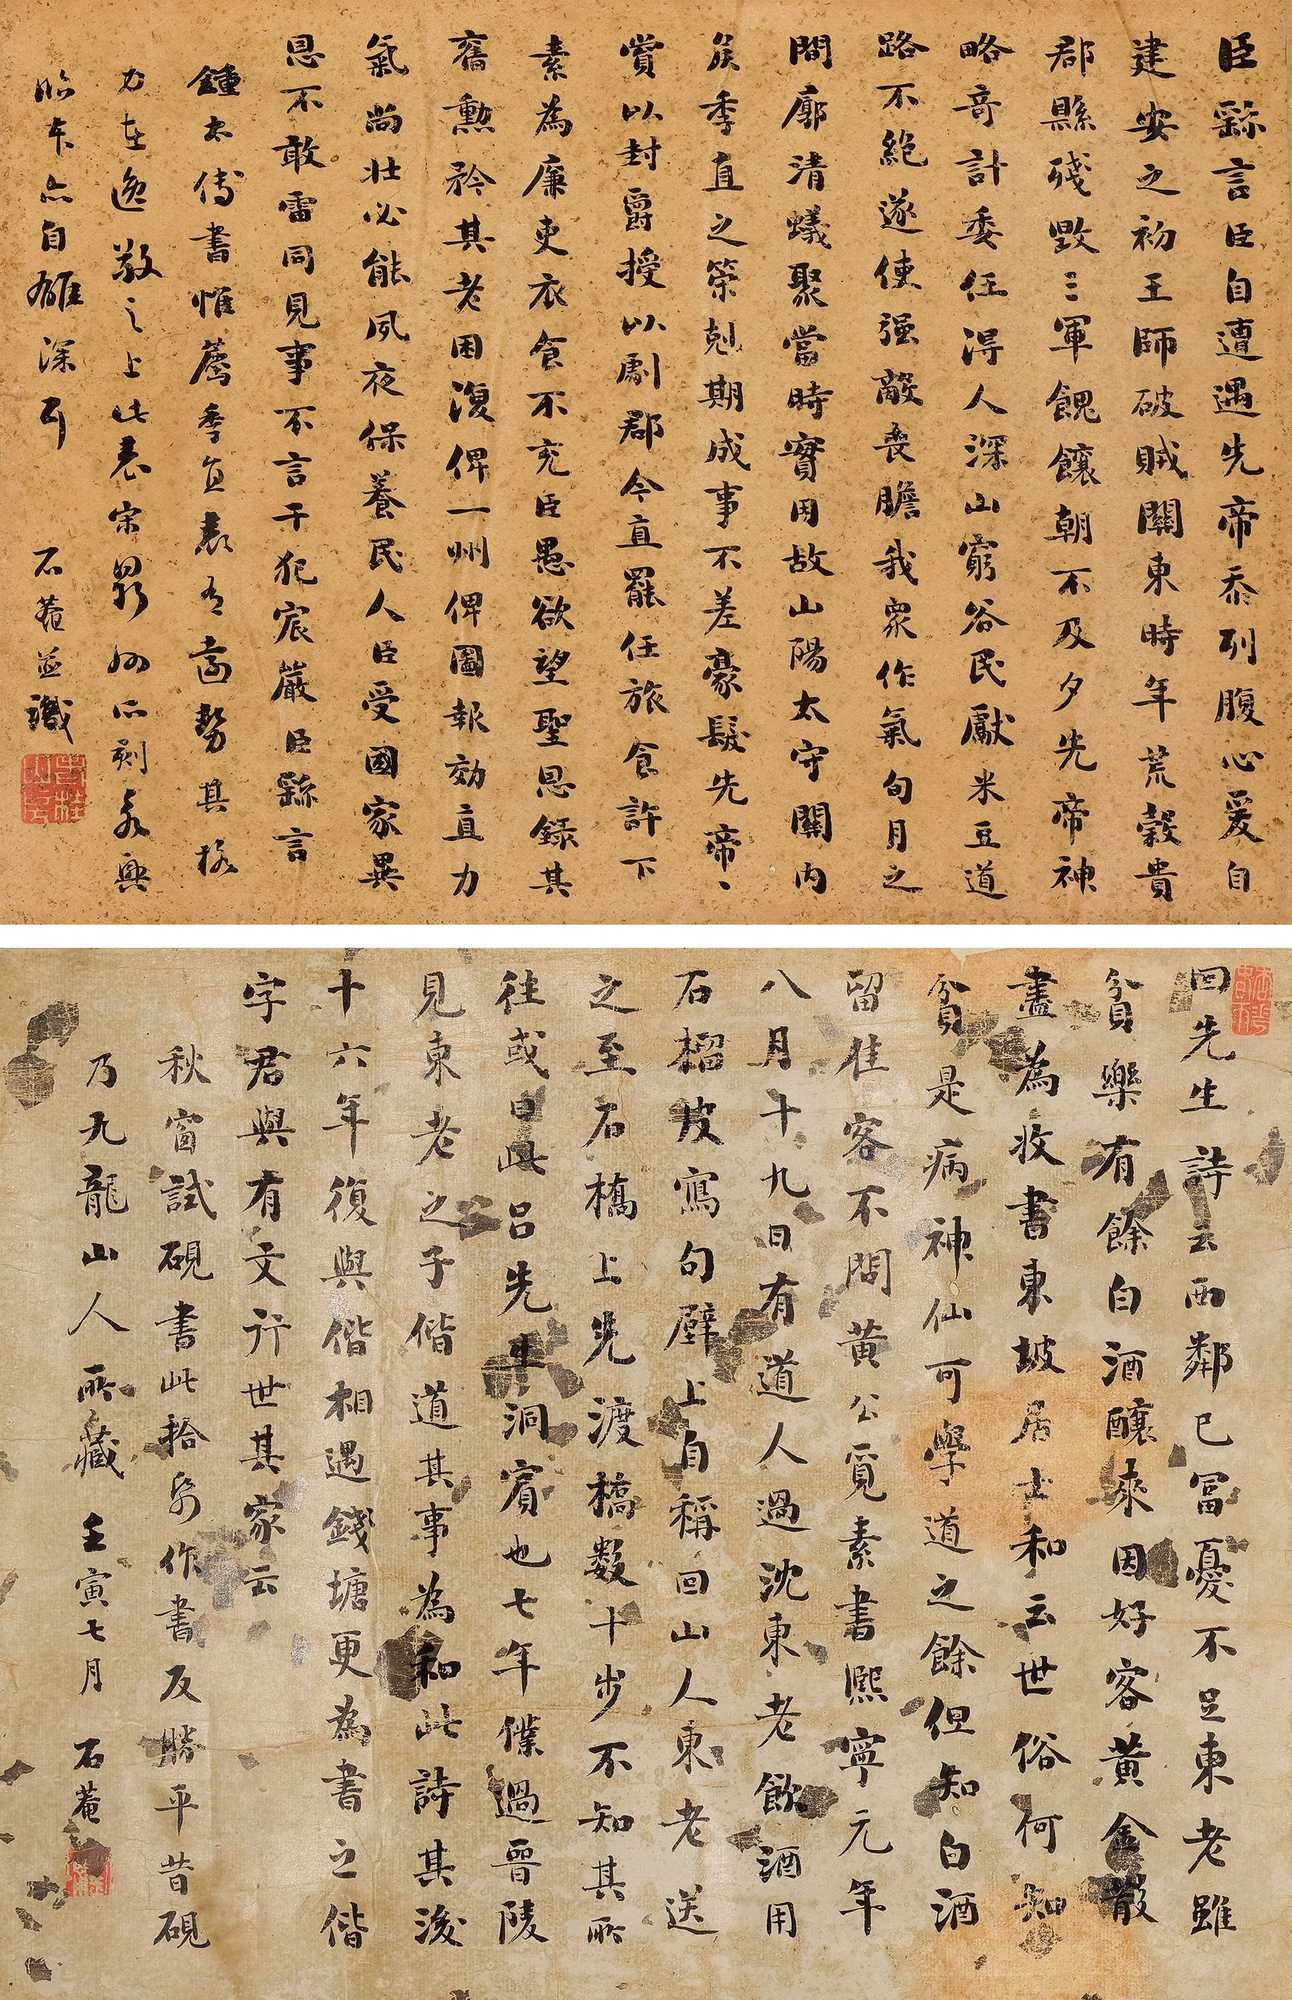 臣繇言臣自遭遇先帝忝列腹心爰自
建安之初王師破賊關東時年荒穀貴
郡縣殘毀三軍餽饟朝不及夕先帝神
略奇計委任得人深山窮谷民獻米豆道
路不絕遂使强敵喪膽我衆作氣旬月之
間廓清蟻聚當時實用故山陽太守關內
矦季直之策剋期成事不差豪髮先帝、
賞以封爵授以劇郡今直罷任旅食許下
素為廉吏衣食不充臣愚欲望聖恩錄其
舊勳矜其老困復俾一州俾圖報効直力
氣尚壯必能夙夜保養民人臣受國家異
恩不敢雷同見事不言干犯宸嚴臣繇言
鍾太傅書惟薦季直表為勢其格
力在逸之上此表宋所刻
臨本亦自離深耳 石菴並識
回先生詩云西鄰已富憂不足東老雖
貧樂有餘白酒釀來因好客黃金散
盡為收書東坡居士和云世俗何知
貧是病神仙可學道之餘但知白酒
留佳客不問黃公覓素書熙寧元年
八月十九日有道人過沈東老飲酒用
石榴皮寫句壁上自稱回山人東老送
之至石橋上先渡橋數十步不知其所
往或曰此呂先生洞賓也七年僕過晉陵
見東老之子偕道其事為和此詩其後
十六年復與偕相遇錢塘更為書之偕
字君與有文行世其家云
秋窗試硯書此拾紙作書反勝平昔硯
乃九龍山人所藏 壬寅七月 石菴